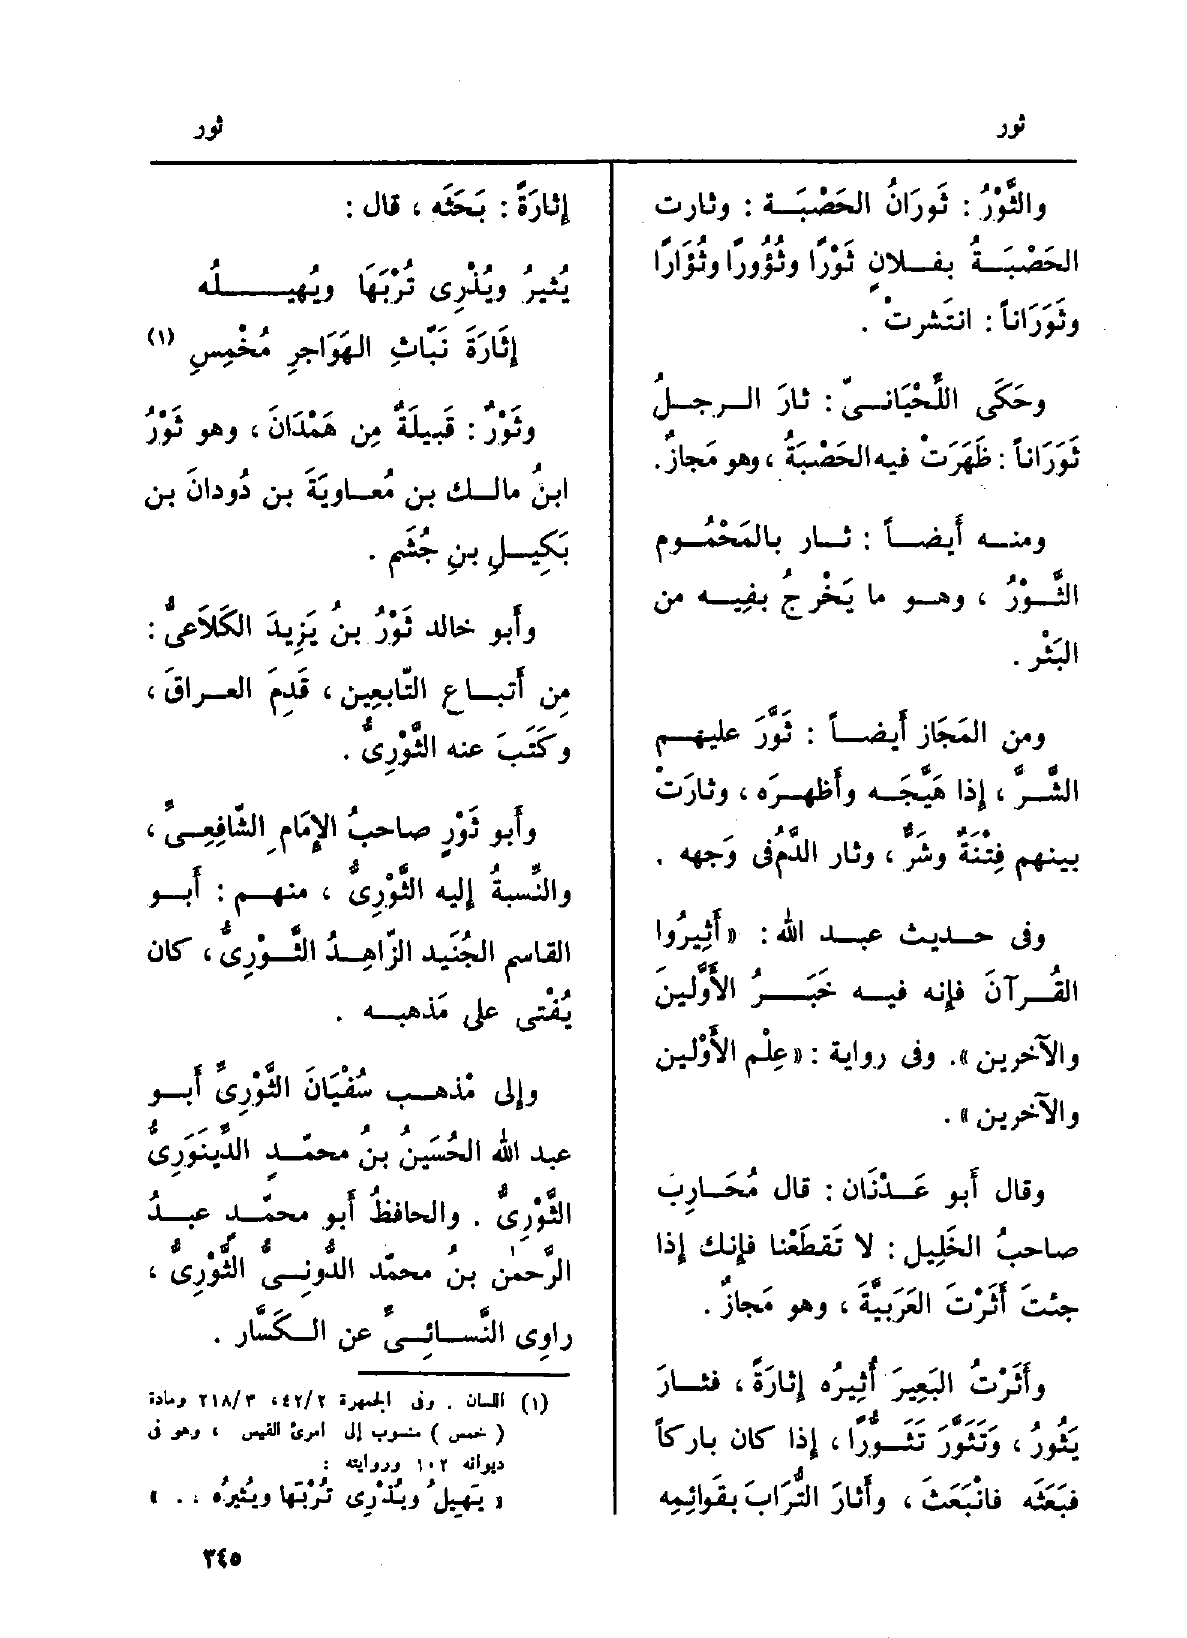 ثور
ثور
والثَّوْرُ : ثَورَانُ الحَصْبَة : وثارت
الحَصْبَةُ بفلانٍ ثَوْرًا وثُؤُورًا وثُؤَارًا
وثَوَرَاناً : انتشرتْ .
وحَكَى اللِّحْيَانىّ : ثارَ الرجلُ
ثَوَرَاناً : ظَهَرَتْ فيه الحَصْبَةُ ، وهو مَجازٌ .
ومنه أَيضاً : ثار بالمَحْمُوم
الثَّوْرُ ، وهو ما يَخْرجُ بفِيه من
البَثْر .
ومن المَجَاز أَيضاً : ثَوَّرَ عليهم
الشَّرَّ ، إذا هَيَّجَه وأَظهرَه ، وثارَتْ
بينهم فِتْنَةٌ وشَرٌّ ، وثار الدَّمُ فى وَجهه .
وفى حديث عبد الله : « أَثِيرُوا
القُرآنَ فإنه فيه خَبَرُ الأَوَّلينَ
والآخرين » . وفى رواية : « عِلْم الأَوْلين
والآخرين » .
وقال أَبو عَدْنَان : قال مُحَارِبَ
صاحبُ الخَلِيل : لا تَقطَعْنا فإنك إذا
جئتَ أَثَرْتَ العَرَبيَّةَ ، وهو مَجازٌ .
وأَثَرْتُ البَعِيرَ أُثِيرُه إثارَةً ، فثارَ
يَثُورُ ، وَتَثَوَّرَ تَثَوُّرًا ، إذا كان باركاً
فبَعَثَه فانْبَعَثَ ، وأَثارَ التُّرابَ بقَوائِمِه
إثارَةً : بَحَثَه ، قال :
يُثيرُ ويُذْرِى تُرْبَهَا ويُهيلُه
إثَارَةَ نَبَّاثِ الهَوَاجرِ مُخْمِسِ (١)
وثَوْرٌ : قَبيلَةٌ مِن هَمْدَانَ ، وهو ثَوْرُ
ابنُ مالك بن مُعاويَةَ بن دُودانَ بن
بَكِيلِ بنِ جُشَم .
وأَبو خالد ثَوْرُ بنُ يَزِيدَ الكَلَاعىُّ :
مِن أَتباع التّابعِين ، قَدِمَ العراقَ ،
وكَتَبَ عنه الثَّوْرِىُّ .
وأَبو ثَوْرٍ صاحبُ الإمَامِ الشّافِعىِّ ،
والنِّسبةُ إليه الثَّوْرِىُّ ، منهم : أَبو
القاسم الجُنَيد الزّاهِدُ الثَّوْرِىُّ ، كان
يُفْتِى على مَذهبه .
وإلى مْذهب سُفْيَانَ الثَّوْرِىِّ أَبو
عبد الله الحُسَينُ بنُ محمّدٍ الدِّينَوَرِىُّ
الثَّوْرِىُّ . والحافظُ أَبو محمّدٍ عبدُ
الرَّحمٰن بنُ محمّد الدُّونىُّ الثَّوْرِىُّ ،
راوِى النَّسائِىِّ عن الكَسَّار .
(١) اللسان . وفى الجمهرة ٤٢/٢، ٢١٨/٣ ومادة
( خمس ) منسوب إلى امرئ القيس ، وهو فى
ديوانه ١٠٢ وروايته :
« يَهيلُ ويُذْرِى تُرْبَها ويُثيرُه .. »
٣٤٥